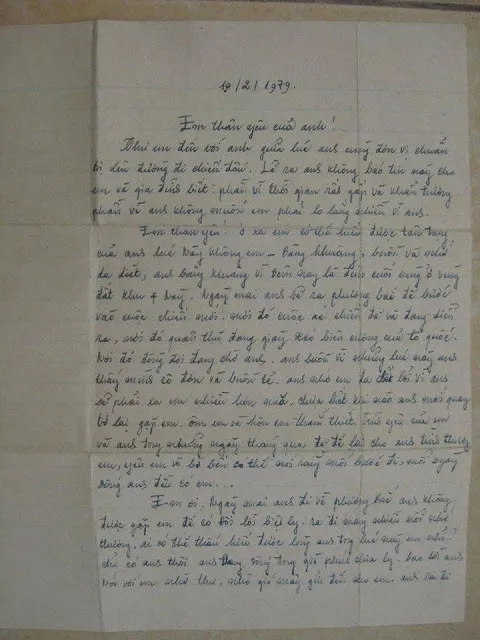 19/2/1979.
Em thân yêu của anh!
Thư em đến với anh giữa lúc anh cùng đơn vị chuẩn
bị lên đường đi chiến đấu. Lẽ ra anh không báo tin này cho
em và gia đình biết: phần vì thời gian rất gấp và khẩn trương
phần vì anh không muốn em phải lo lắng nhiều vì anh.
Em thân yêu! ở xa em có thể hiểu được tâm trạng
của anh lúc này không em - Bâng khuâng, buồn và nhớ
da diết, anh bâng khuâng vì đêm nay là đêm cuối cùng ở vùng
đất khu 4 này. Ngày mai anh sẽ ra phương bắc để bước
vào cuộc chiến mới. nơi đó cuộc chiến đã và đang diễn
ra, nơi đó quân thù đang giày xéo biên cương của tổ quốc.
Nơi đó đồng đội đang chờ anh. anh buồn vì những lúc này anh
thấy mình cô đơn và buồn tẻ. anh nhớ em da diết bởi vì anh
sẽ phải xa em nhiều hơn nữa. chưa biết khi nào anh mới quay
trở lại gặp em. ôm em và hôn em tha thiết. Tình yêu của em
và anh trong những ngày tháng qua đã để lại cho anh tình thương
em, yêu em vô bờ bến có thể nói rằng mỗi bước đi, mỗi ngày
sống anh đều có em...
Em ơi, Ngày mai anh đi về phương bắc anh không
được gặp em để có đôi lời biệt ly. ra đi mang nhiều nỗi nhớ
thương, ai có thể thấu hiểu được lòng anh trong lúc này em nhỉ.
chỉ có anh thôi anh đang sống trong giờ phút chia ly. bao lời anh
nói với em nhờ thư, nhờ gió mây gửi đến cho em. anh ra đi